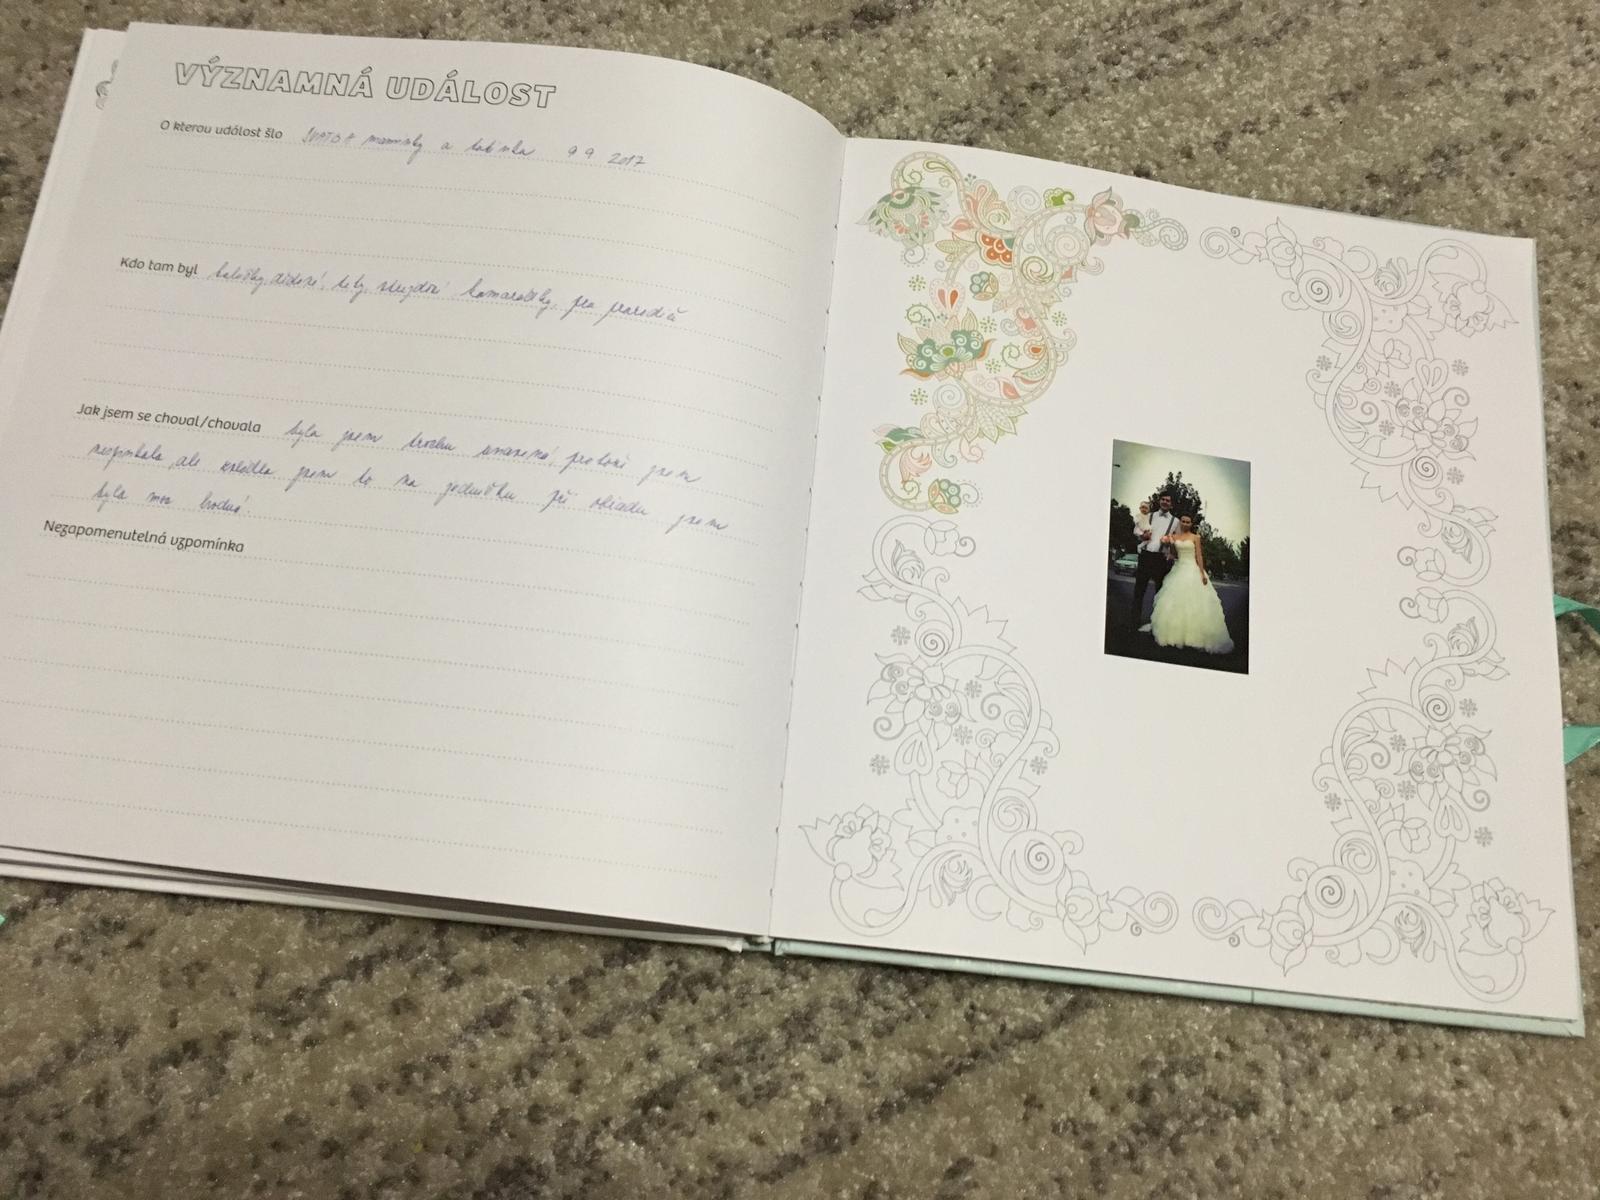 VÝZNAMNÁ UDÁLOST
O kterou událost šlo SVATBA maminky a tatínka 9 9 2017
Kdo tam byl babičky, dědové, tety, strejdové kamarádky, pra prarodiče
Jak jsem se choval/chovala byla jsem trochu unavená, protože jsem
nespinkala, ale zvládla jsem to na jedničku při obiadu jsem
byla moc hodná!
Nezapomenutelná vzpomínka